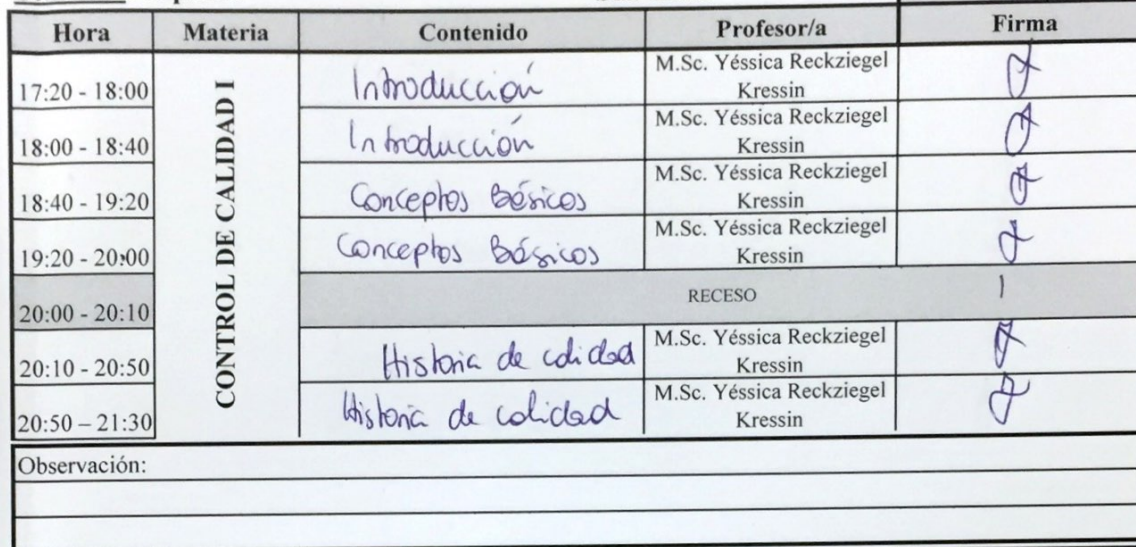 Hora Materia Contenido Profesor/a Firma
17:20 - 18:00 Introducción M.Sc. Yéssica Reckziegel Kressin
18:00 - 18:40 Introducción M.Sc. Yéssica Reckziegel Kressin
18:40 - 19:20 Conceptos Básicos M.Sc. Yéssica Reckziegel Kressin
19:20 - 20:00 Conceptos Básicos M.Sc. Yéssica Reckziegel Kressin
CONTROL DE CALIDAD I
20:00 - 20:10 RECESO
20:10 - 20:50 Historia de calidad M.Sc. Yéssica Reckziegel Kressin
20:50 – 21:30 Historia de calidad M.Sc. Yéssica Reckziegel Kressin
Observación: